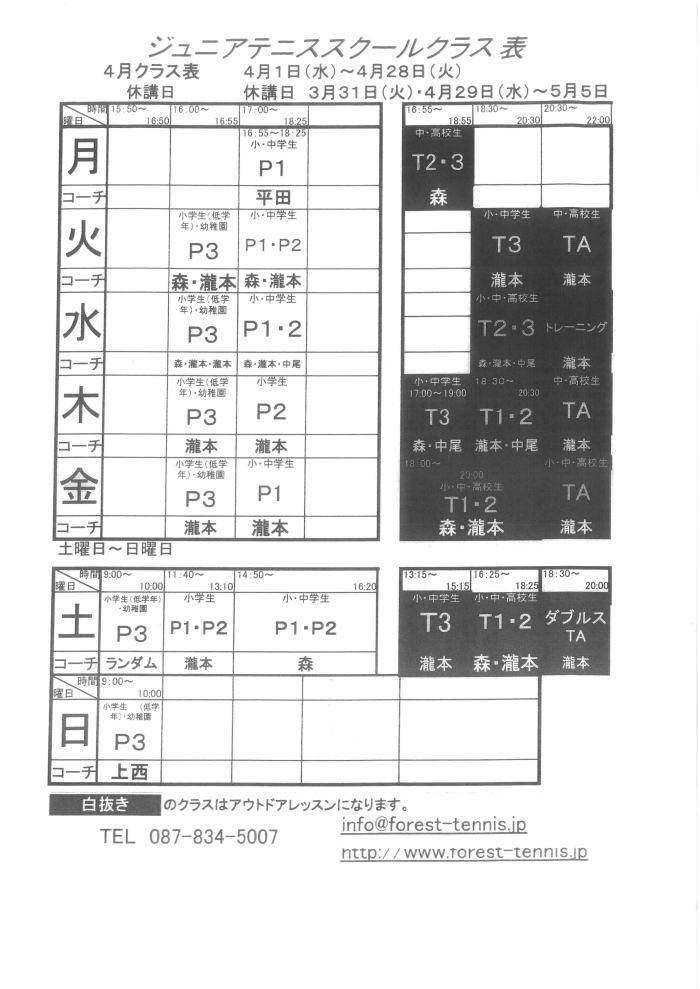 ジュニアテニススクールクラス表
4月クラス表 4月1日(水)～4月28日(火)
休講日 休講日 3月31日(火)・4月29日(水)～5月5日
時間 曜日 15:50～16:50 16:00～16:55 17:00～18:25 16:55～18:55 18:30～20:30 20:30～22:00
月 16:55～18:25 小・中学生 P1 中・高校生 T2・3
コーチ 平田 森
火 小学生(低学年)・幼稚園 P3 小・中学生 P1・P2 小・中学生 T3 中・高校生 TA
コーチ 森・瀧本 森・瀧本 瀧本 瀧本
水 小学生(低学年)・幼稚園 P3 小・中学生 P1・2 小・中・高校生 T2・3 トレーニング
コーチ 森・瀧本・瀧本 森・瀧本・中尾 森・瀧本・中尾 瀧本
木 小学生(低学年)・幼稚園 P3 小学生 P2 小・中学生 17:00～19:00 T3 18:30～20:30 T1・2 中・高校生 TA
コーチ 瀧本 瀧本 森・中尾 瀧本・中尾 瀧本
金 小学生(低学年)・幼稚園 P3 小・中学生 P1 18:00～20:00 小・中・高校生 T1・2 小・中・高校生 TA
コーチ 瀧本 瀧本 森・瀧本 瀧本
土曜日～日曜日
時間 曜日 9:00～10:00 11:40～13:10 14:50～16:20 13:15～15:15 16:25～18:25 18:30～20:00
土 小学生(低学年)・幼稚園 P3 小学生 P1・P2 小・中学生 P1・P2 小・中学生 T3 小・中・高校生 T1・2 ダブルス TA
コーチ ランダム 瀧本 森 瀧本 森・瀧本 瀧本
時間 曜日 9:00～10:00
日 小学生 (低学年)・幼稚園 P3
コーチ 上西
白抜き のクラスはアウトドアレッスンになります。
TEL 087-834-5007 info@forest-tennis.jp
http://www.forest-tennis.jp